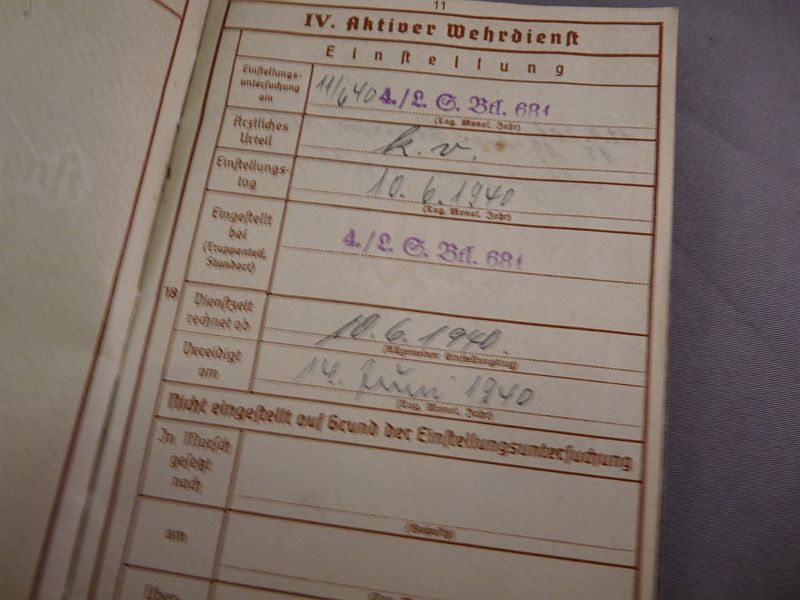 11
IV. Aktiver Wehrdienst
Einstellung
Einstellungs-
untersuchung
am
11/6 40 4./L. S. Btl. 681
(Tag, Monat, Jahr)
Ärztliches
Urteil
k. v.
Einstellungs-
tag
10. 6. 1940
(Tag, Monat, Jahr)
Eingestellt
bei
(Truppenteil,
Standort)
4./L. S. Btl. 681
18 Dienstzeit
rechnet ab
10. 6. 1940.
(Allgemeiner Einstellungstag)
Vereidigt
am
14. Juni 1940
(Tag, Monat, Jahr)
Nicht eingestellt auf Grund der Einstellungsuntersuchung
In Marsch
gesetzt
nach
am